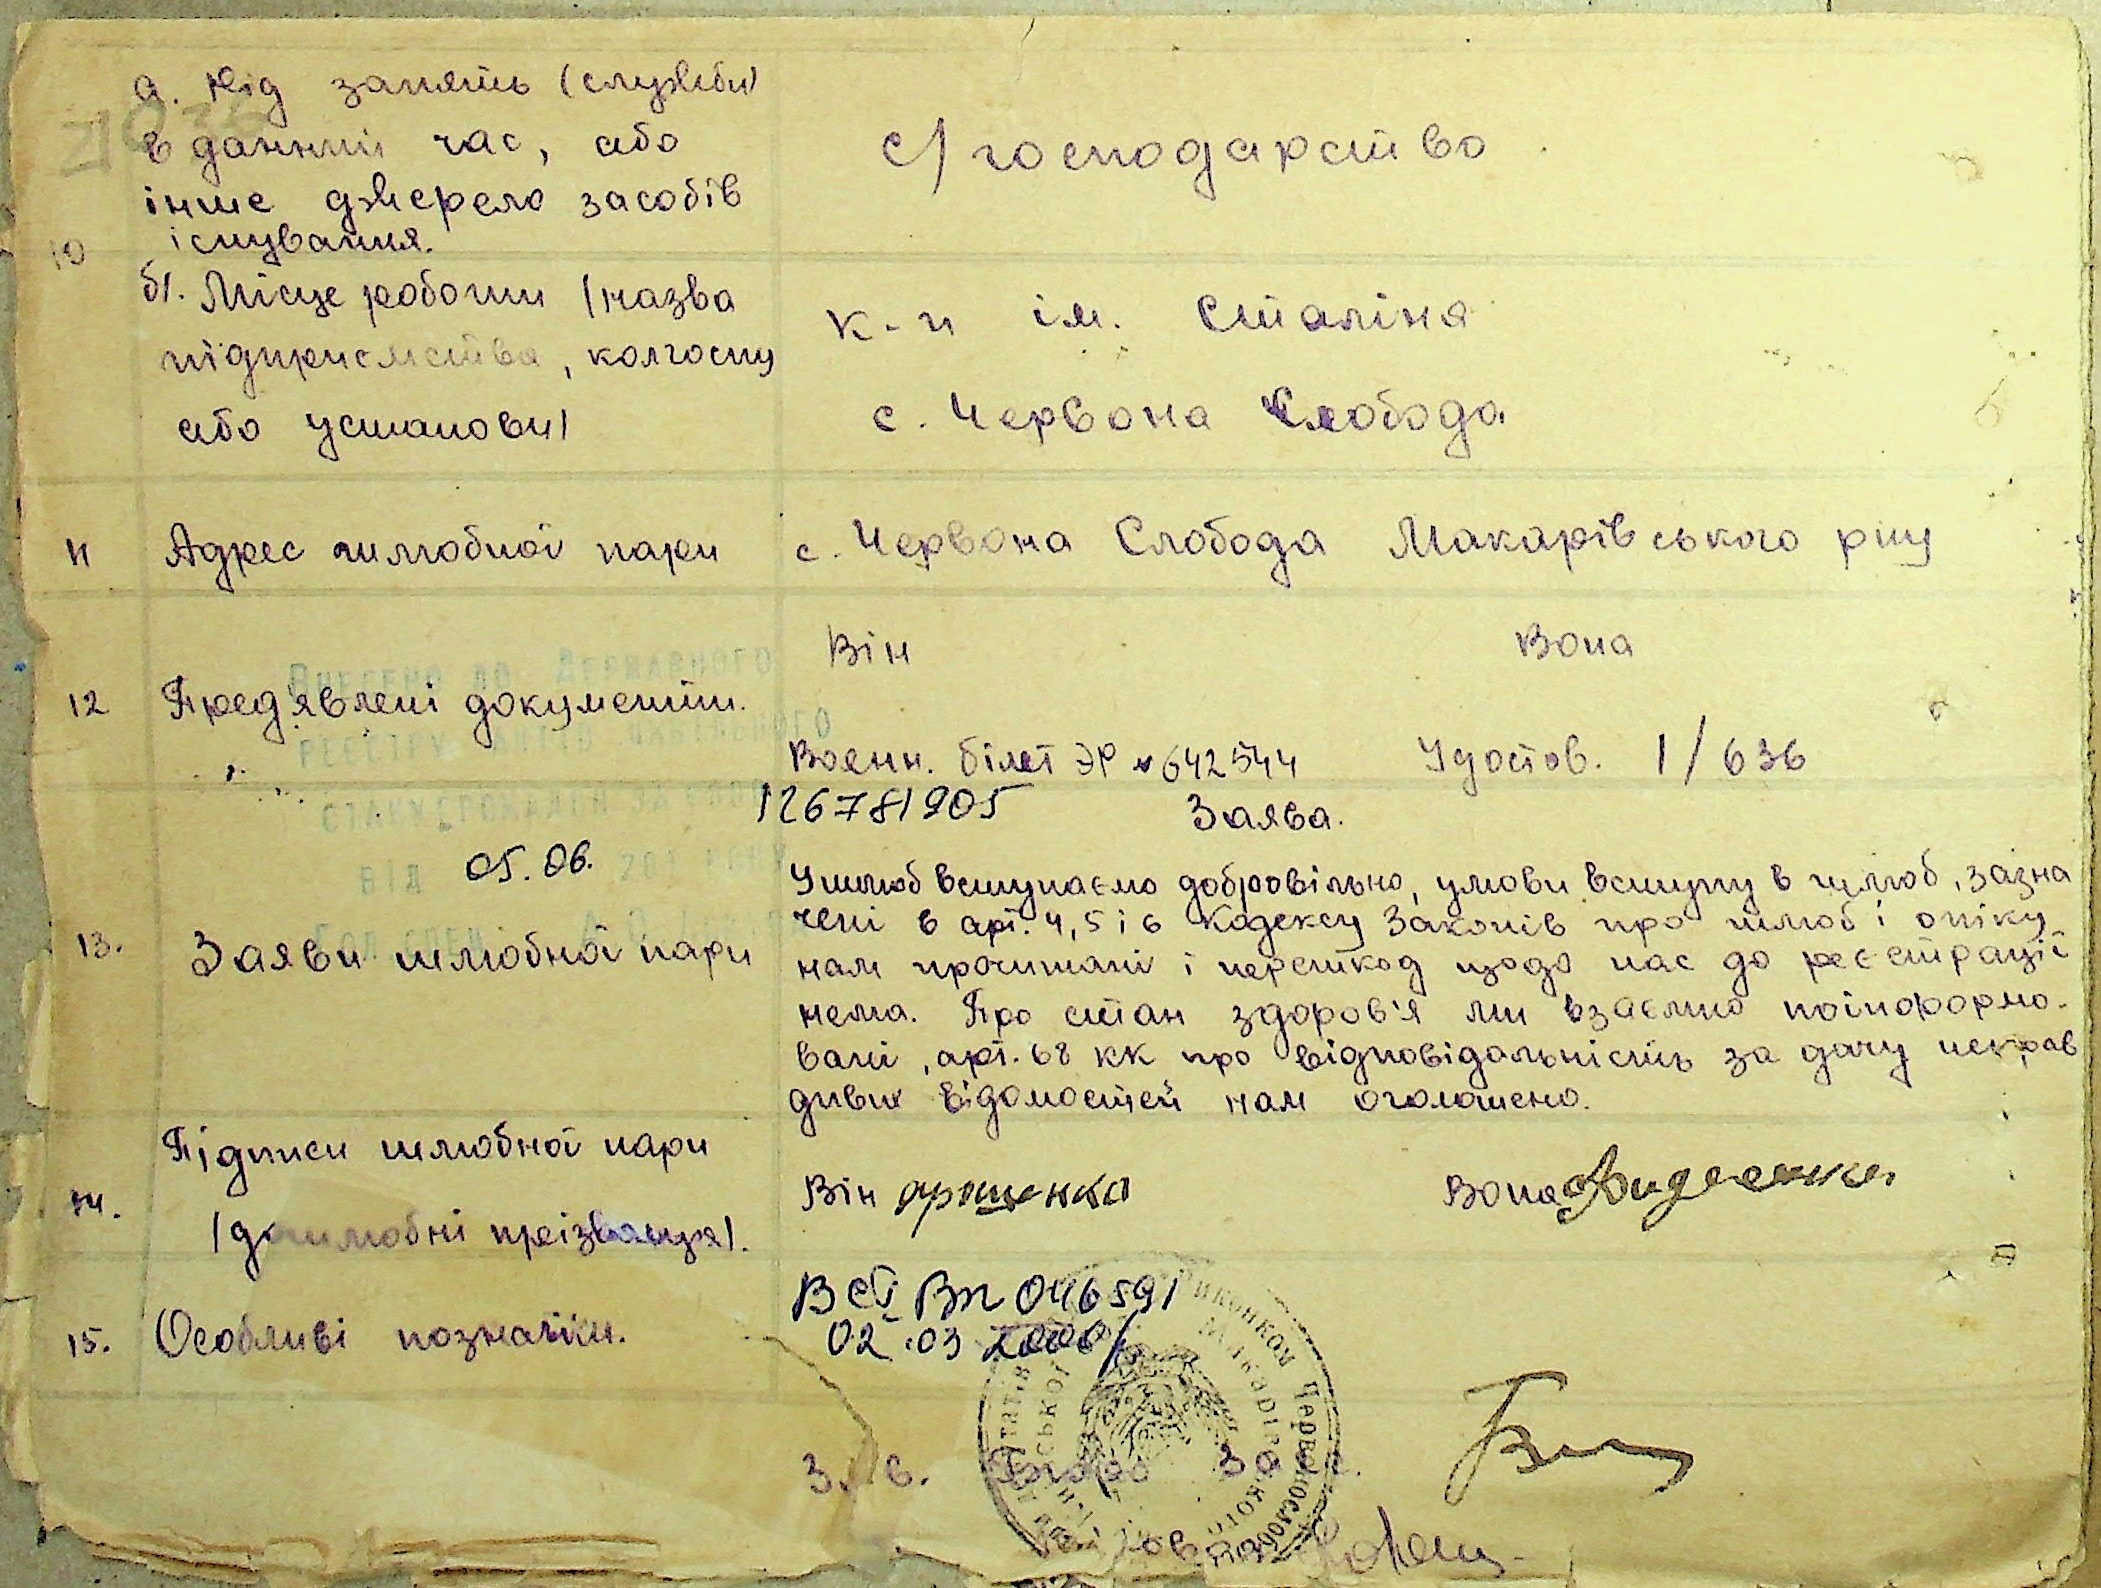 а. Рід занять (служби)
в данний час, або
інше джерело засобів
існування.
с/господарство
10
б). Місце роботи (назва
підприємства, колгоспу
або установи)
к-п ім. Сталіна
с. Червона Слобода
11 Адрес шлюбної пари
с. Червона Слобода Макарівського р-ну
Він Вона
12 Пред'явлені документи.
Воєнн. білет ЭР № 642544 Удостов. 1/636
Внесено до Державного
реєстру
від 05.06. 201
126781905
Заява.
13. Заяви шлюбної пари
У шлюб вступаємо добровільно, умови вступу в шлюб, зазна
чені в арт. 4, 5 і 6 Кодексу Законів про шлюб і опіку
нам прочитані і перешкод щодо нас до реєстрації
нема. Про стан здоров'я ми взаємно поінформо-
вані, арт. 68 КК про відповідальність за дачу неправ
дивих відомостей нам оголошено.
14. Підписи шлюбної пари
(дошлюбні прізвища).
Він Ярошенко Вона
15. Особливі позначки.
ВСТ ВП 046591
02.03 2000
Виконком Червонослоб
Макарівського
Зав. Бюро